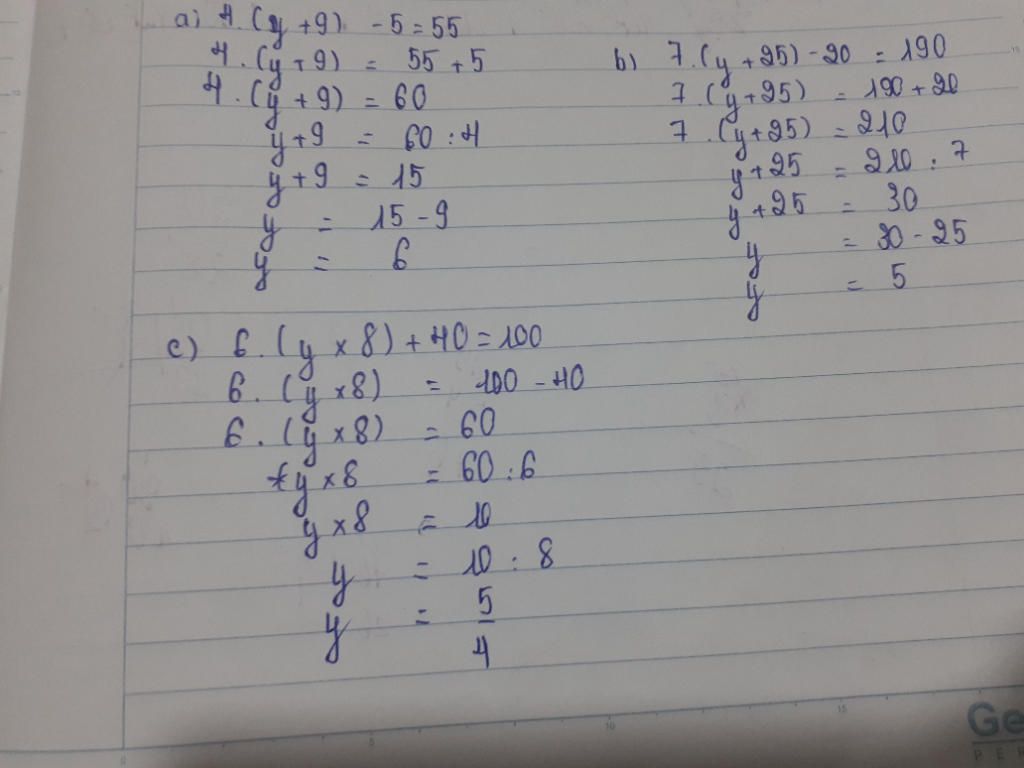 a) 4. (y + 9) - 5 = 55
4. (y + 9) = 55 + 5
4. (y + 9) = 60
y + 9 = 60 : 4
y + 9 = 15
y = 15 - 9
y = 6
b) 7. (y + 25) - 20 = 190
7. (y + 25) = 190 + 20
7. (y + 25) = 210
y + 25 = 210 : 7
y + 25 = 30
y = 30 - 25
y = 5
c) 6. (y x 8) + 40 = 100
6. (y x 8) = 100 - 40
6. (y x 8) = 60
y x 8 = 60 : 6
y x 8 = 10
y = 10 : 8
y = 5/4
5 10 15
Ge
PE